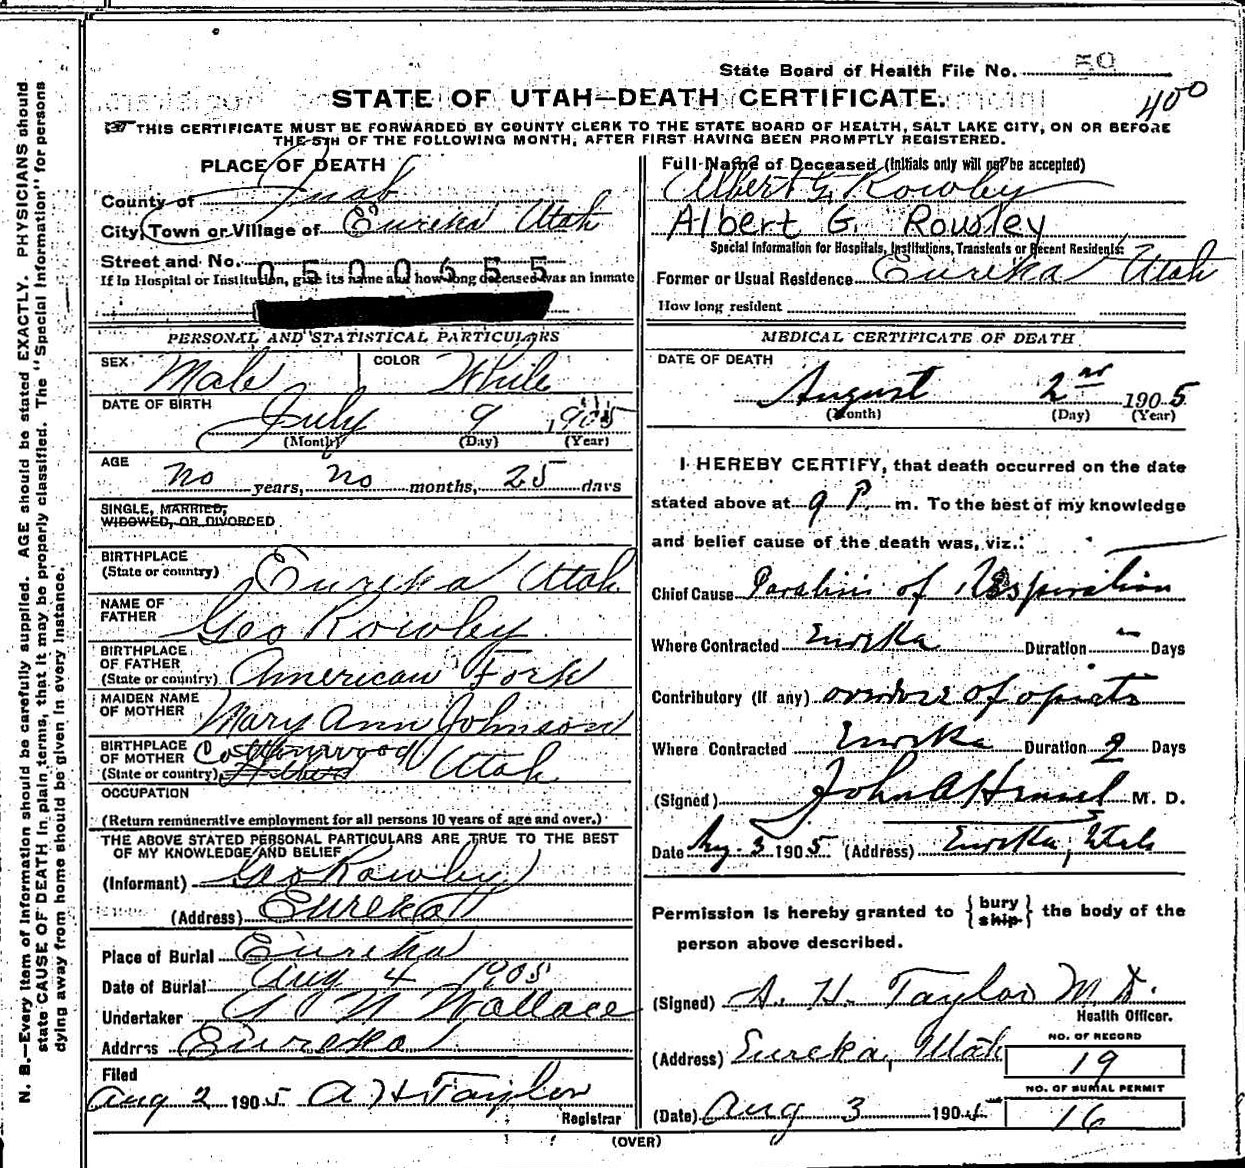 N. B.—Every item of information should be carefully supplied. AGE should be stated EXACTLY. PHYSICIANS should
state CAUSE OF DEATH in plain terms, that it may be properly classified. The "Special Information" for persons
dying away from home should be given in every instance.
State Board of Health File No. 50
400
STATE OF UTAH—DEATH CERTIFICATE.
THIS CERTIFICATE MUST BE FORWARDED BY COUNTY CLERK TO THE STATE BOARD OF HEALTH, SALT LAKE CITY, ON OR BEFORE
THE 5TH OF THE FOLLOWING MONTH, AFTER FIRST HAVING BEEN PROMPTLY REGISTERED.
PLACE OF DEATH
County of Juab
City, Town or Village of Eureka Utah
Street and No.
0500655
If in Hospital or Institution, give its name and how long deceased was an inmate
PERSONAL AND STATISTICAL PARTICULARS
SEX Male COLOR White
DATE OF BIRTH July 9 1905
(Month) (Day) (Year)
AGE no years, no months, 25 days
SINGLE, MARRIED,
WIDOWED, OR DIVORCED
BIRTHPLACE
(State or country) Eureka Utah
NAME OF
FATHER Geo Rowley
BIRTHPLACE
OF FATHER
(State or country) American Fork
MAIDEN NAME
OF MOTHER Mary Ann Johnson
BIRTHPLACE
OF MOTHER Cottonwood
(State or country) Utah
OCCUPATION
(Return remunerative employment for all persons 10 years of age and over.)
THE ABOVE STATED PERSONAL PARTICULARS ARE TRUE TO THE BEST
OF MY KNOWLEDGE AND BELIEF
(Informant) Geo Rowley
(Address) Eureka
Place of Burial Eureka
Date of Burial Aug 4 1905
Undertaker Wallace
Address Eureka
Filed
Aug 2 1905 A H Taylor
Registrar
Full Name of Deceased (Initials only will not be accepted)
Albert G. Rowley
Albert G. Rowley
Special Information for Hospitals, Institutions, Transients or Recent Residents:
Former or Usual Residence Eureka Utah
How long resident
MEDICAL CERTIFICATE OF DEATH
DATE OF DEATH
August 2nd 1905
(Month) (Day) (Year)
I HEREBY CERTIFY, that death occurred on the date
stated above at 9 P. m. To the best of my knowledge
and belief cause of the death was, viz.:
Chief Cause Paralisis of Respiration
Where Contracted Eureka Duration Days
Contributory (if any) overdose of opiets
Where Contracted Eureka Duration 2 Days
(Signed) John A Hensel M. D.
Date Aug. 3 1905 (Address) Eureka, Utah
Permission is hereby granted to { bury
ship } the body of the
person above described.
(Signed) A. H. Taylor M.D.
Health Officer.
(Address) Eureka, Utah
NO. OF RECORD
19
NO. OF BURIAL PERMIT
16
(Date) Aug 3 1905
(OVER)